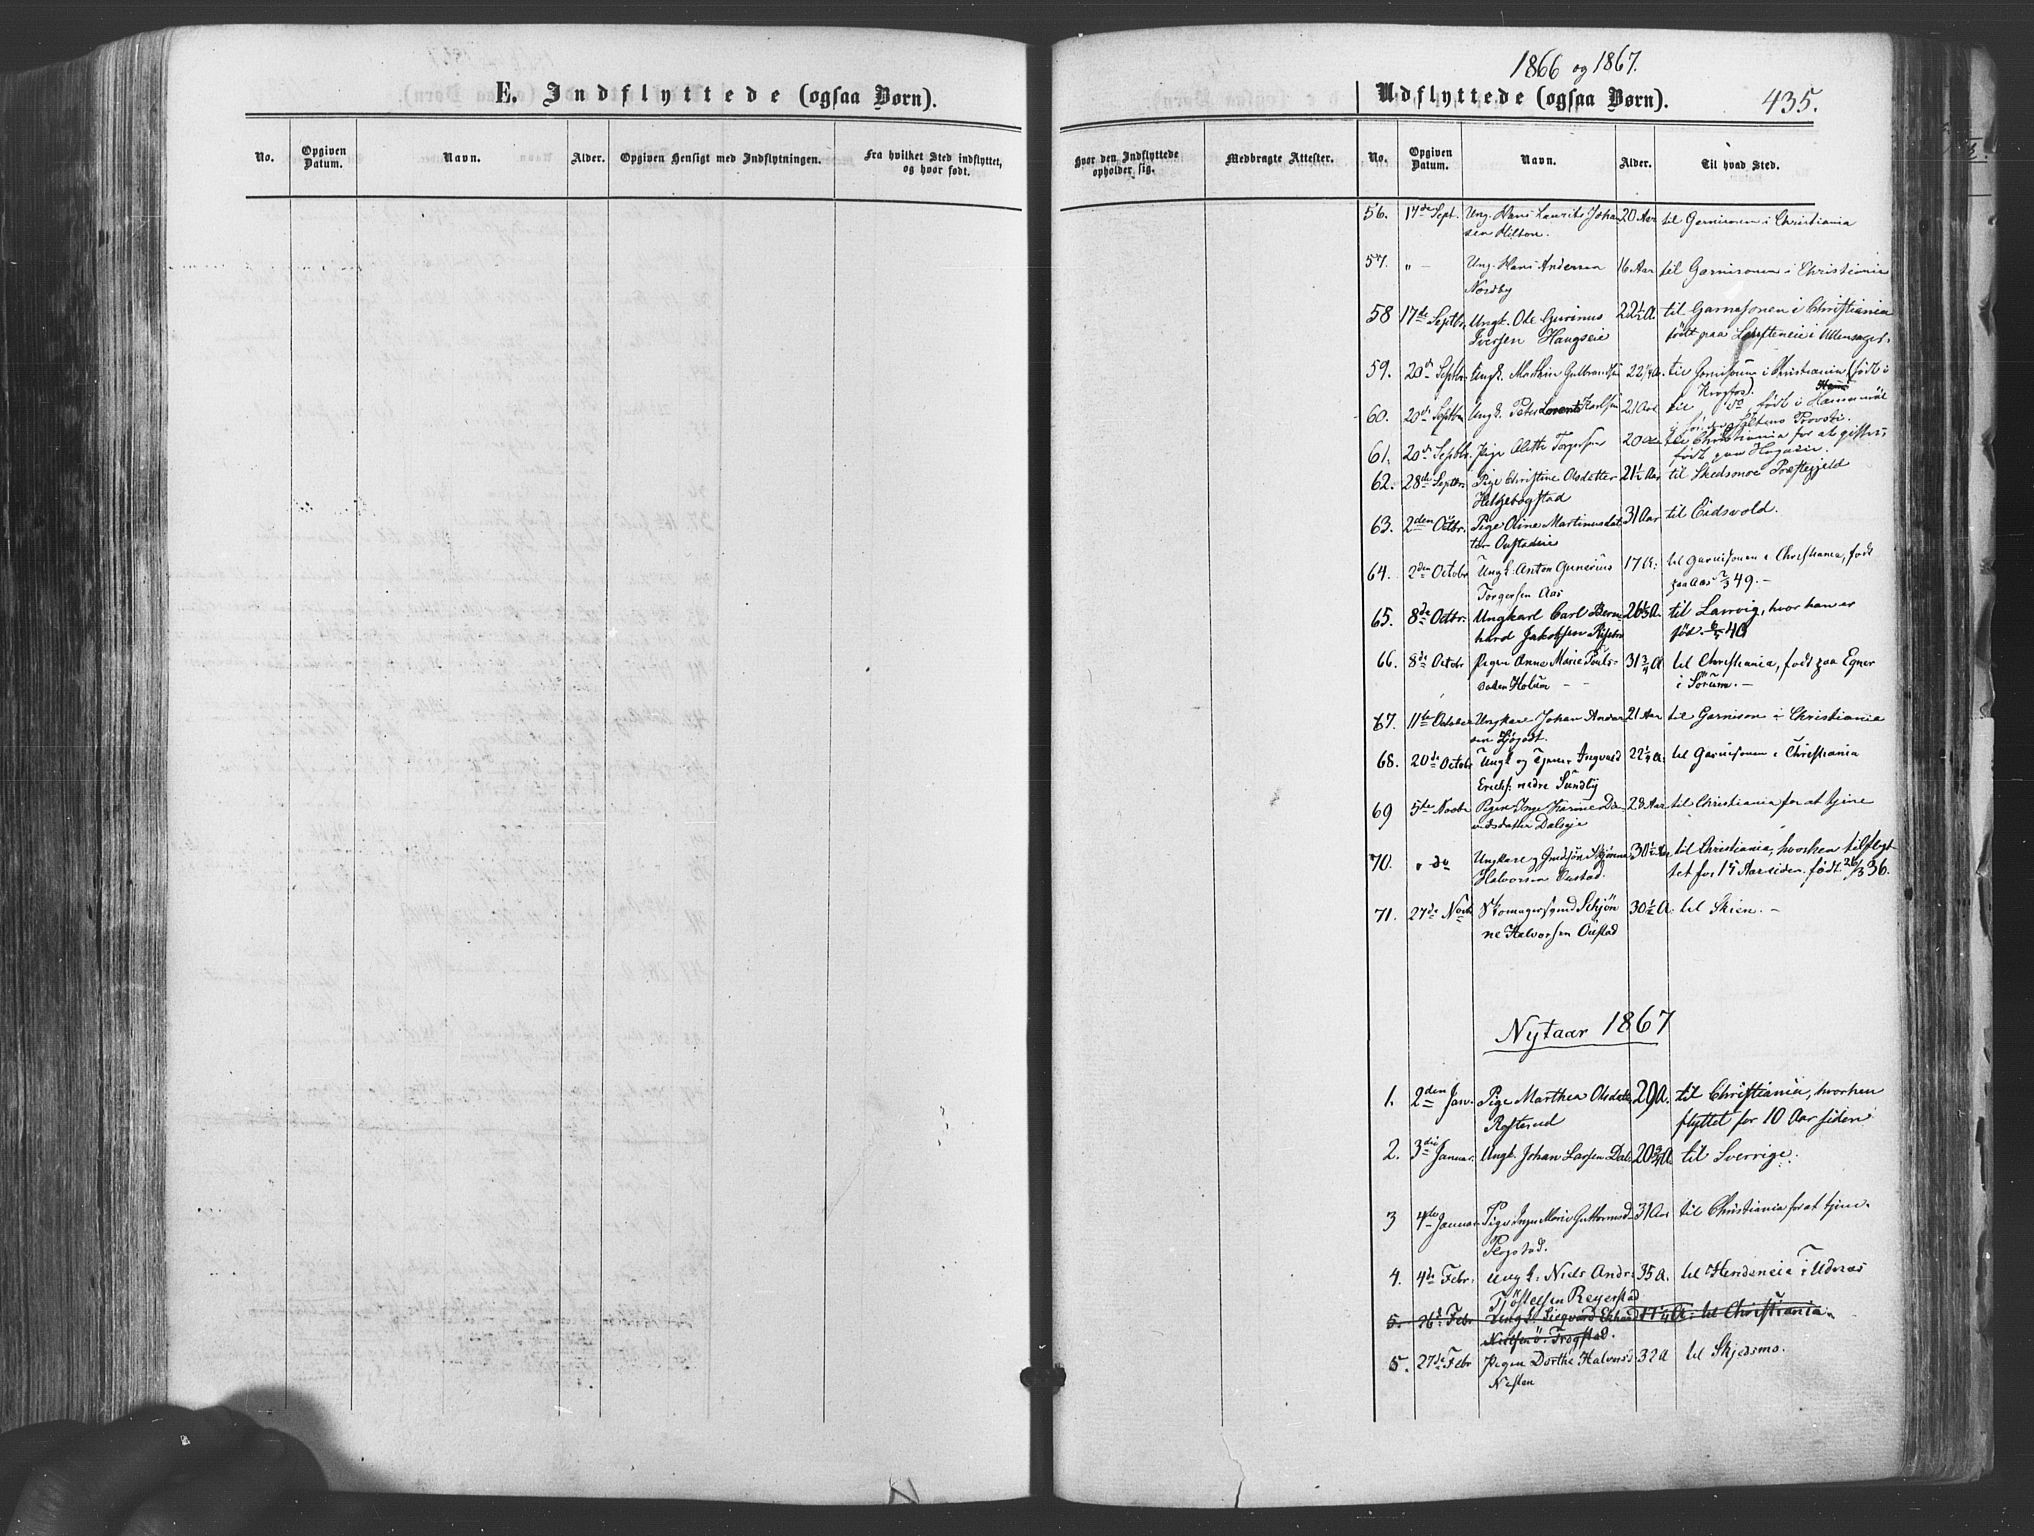 1866 og 1867.
E. Indflyttede (ogsaa Børn).
Udflyttede (ogsaa Børn).
435.
No.
Opgiven Datum.
Navn.
Alder.
Opgiven Hensigt med Indflytningen.
Fra hvilket Sted indflyttet, og hvor født.
Hvor den Indflyttede opholder sig.
Medbragte Attester.
No.
Opgiven Datum.
Navn.
Alder.
Til hvad Sted.
56. 17de Sept. Ung. Hans Laurits Johan 20 Aar til Garnisonen i Christiania
sen Hilton.
57. " — Ung. Hans Andersen 16 Aar til Garnisonen i Christiania
Nordby
58 17de Septbr. Ungk. Ole Gurinus 22½ A. til Garnasonen i Christiania
Iversen Haugseie født paa i Ullensager.
59. 20de Septbr. Ungk. Mathin Gulbrandsen 22¼ A. til Garnisonen i Christiania (født i
60. 20de Septbr Ungk. Peter Lorents Karlsen 21 Aar til do, født i
Provsti.
61. 20de Septbr. Pige Olette Torgersen 20 Aar til Christiania for at giftes,
født paa
62. 28de Septbr. Pige Christine Olsdatter 21½ Aar til Skedsmoe Præstegjeld
Helgebogstad
63. 2den Octbr. Pige Oline Martinusdat 31 Aar til Eidsvold.
ter Oustadeie
64. 2den Octobr Ungk: Anton Gunerius 17 A: til Garnisonen i Christiania, født
Torgersen Aas paa Aas 2/3 49. —
65. 8de Octbr. Ungkarl Carl Bern 26⅓ A. til Laurvig, hvor han er
hard Jakobsen fød. 40
66. 8de Octobr Pigen Anne Marie Pouls- 31¾ A til Christiania, født paa Egner
datter Holum — — i Sørum. —
67. 11te October Ungkarl Johan Ander 21 Aar til Garnison i Christiania
sen Ljøgodt.
68. 20de Octobr Ungk og Tjener Ingvald 22¼ A. til Garnisonen i Christiania
Erichs: nedre Sundby
69 5te Novbr Pigen Inge Karine Da- 28 Aar til Christiania for at tjene
vidsdatter Dalseie
70. " do Ungkarl Skjønne 30½ Aar til Christiania, hvorhen tilflyt
Halvorsen Oustad. tet for 15 Aar siden. født 26/3 36.
71. 27de Novb Skomagersvend Schjøn 30½ A. til Skien. —
ne Halvorsen Oustad
Nytaar 1867
1. 2den Jan. Pige Marthea Olsdatt 29 A. til Christiania, hvorhen
flyttet for 10 Aar siden
2. 3die Januar. Ungk. Johan Larsen Dal. 20¾ A. til Sverrige.
3 4de Januar Pige Inger Marie Guttormsd 31 Aar til Christiania for at tjene.
4. 4de Febr. Ungk: Niels Andr: 35 A. til Hendeneie i Udenæs
Tjøstelsen Reyerstad
5. 26d: Febr Ungk: Siegvard Edvard 17¼ A: til Christiania.
Nielsen ø. Frogstad.
5. 27de Febr Pigen Dorthe Halvorsd 32 A til Skjedsmo.
Nesten